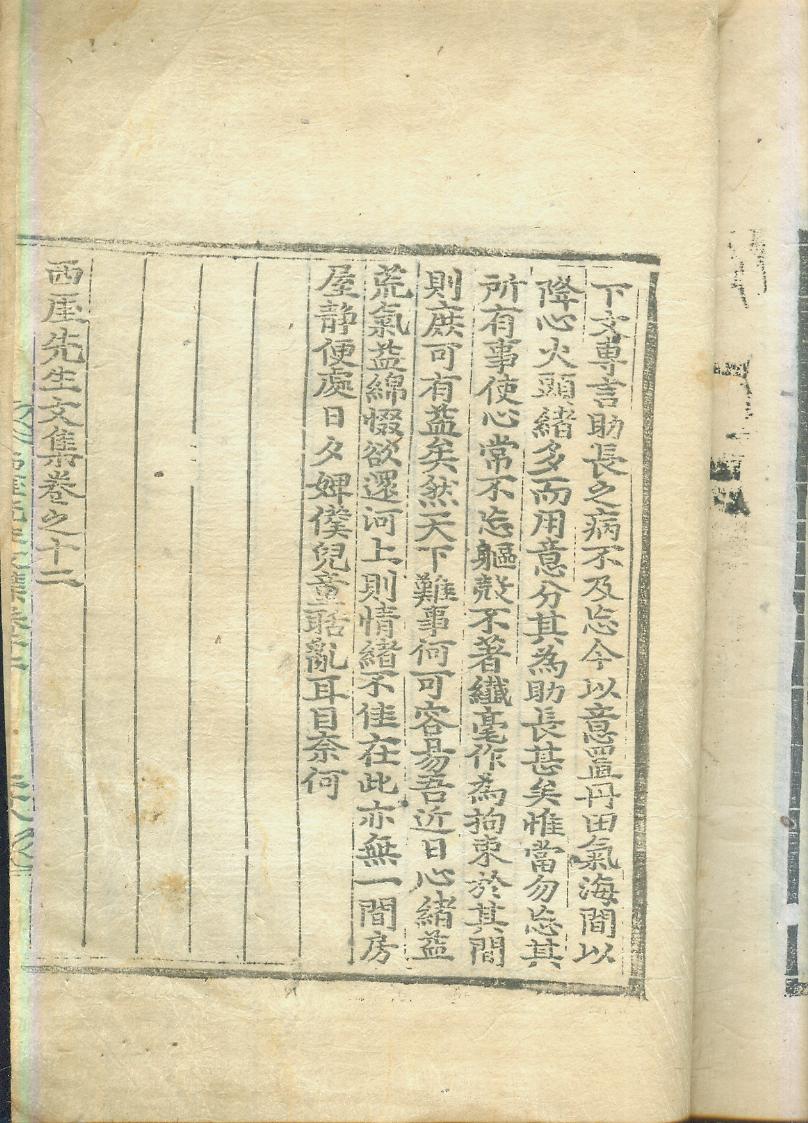 下文專言助長之病不及忘今以意置丹田氣海間以
降心火頭緖多而用意分其為助長甚矣惟當勿忘其
所有事使心常不忘軀殼不著纖毫作為拘束於其間
則庶可有益矣然天下難事何可容易吾近日心緖益
荒氣益綿惙欲還河上則情緖不佳在此亦無一間房
屋靜便處日夕婢僕兒童聒亂耳目奈何
西厓先生文集卷之十二